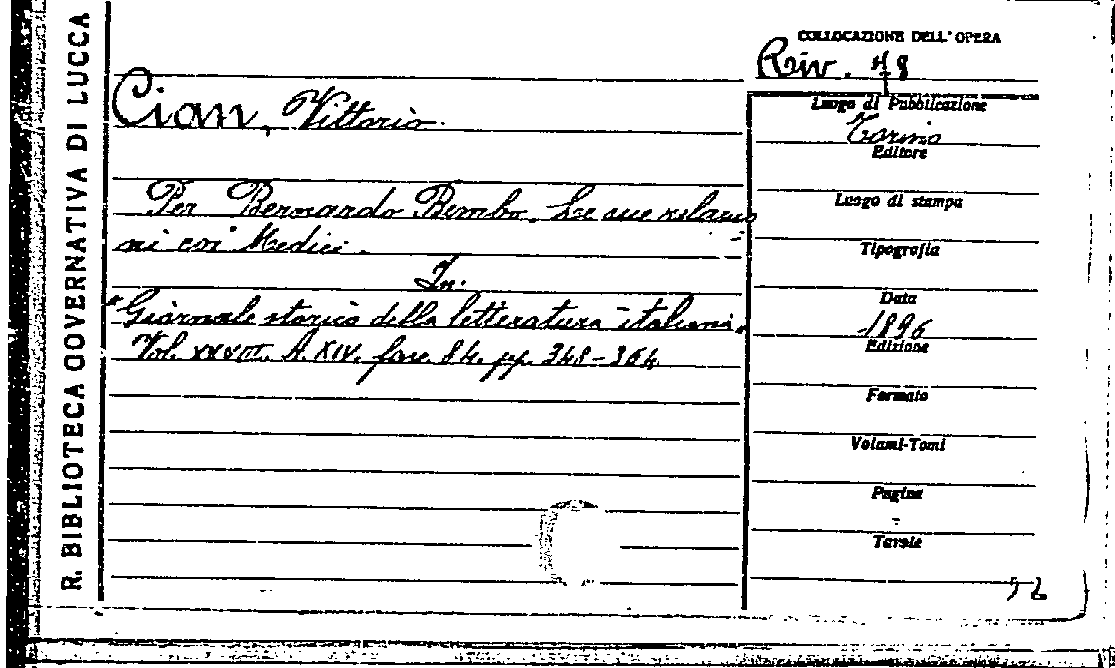 R. BIBLIOTECA GOVERNATIVA DI LUCCA
COLLOCAZIONE DELL' OPERA
Riv. 48
Cian, Vittorio.
Per Bernardo Bembo. Le sue relazio
ni coi Medici.
In:
"Giornale storico della letteratura italiana"
Vol. XXVIII. A. XIV. fasc. 84. pp. 348-364
Luogo di Pubblicazione
Torino
Editore
Luogo di stampa
Tipografia
Data
1896
Edizione
Formato
Volumi-Tomi
Pagine
Tavole